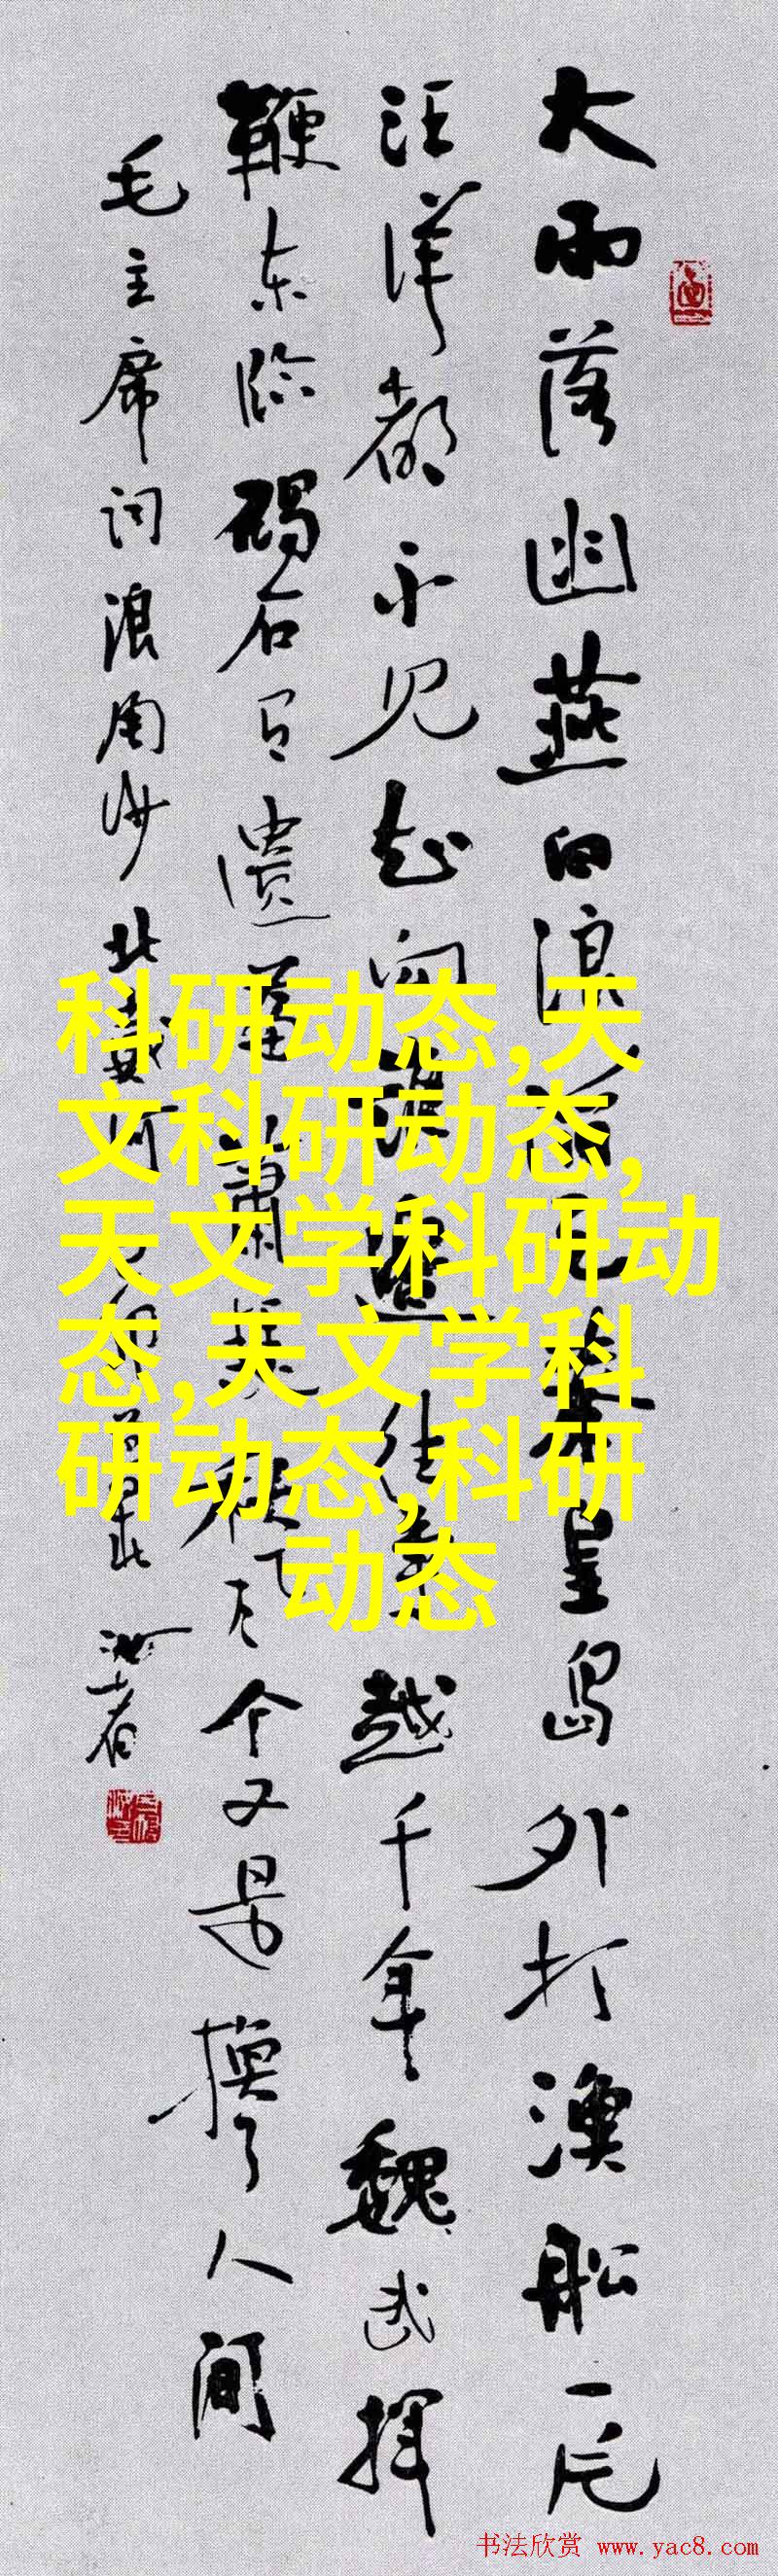 大雨落幽燕白浪滔天秦皇島外打漁船一片
汪洋都不見知向誰邊往事越千年魏武揮
鞭東臨碣石有遺篇蕭瑟秋風今又是換了人間
毛主席词浪淘沙北戴河
科研动态,天
文科研动态,
天文学科研动
态,天文学科
研动态,科研
动态
书法欣赏 www.yac8.com